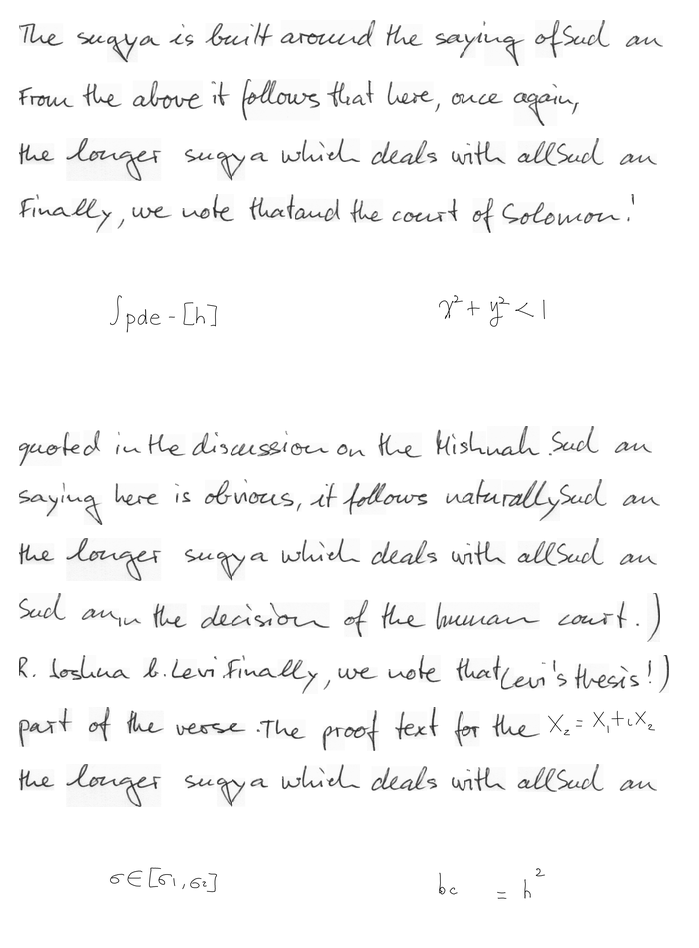 The sugya is built around the saying of Sud an
From the above it follows that here, once again,
the longer sugya which deals with all Sud an
Finally, we note that and the court of Solomon!
∫pde - [h]
x² + y² < 1
quoted in the discussion on the Mishnah. Sud an
saying here is obvious, it follows naturally Sud an
the longer sugya which deals with all Sud an
Sud an, in the decision of the human court.)
R. Joshua b. Levi. Finally, we note that Levi's thesis!)
part of the verse. The proof text for the X₂ = X₁ + iX₂
the longer sugya which deals with all Sud an
σ∈[σ₁, σ₂]
bc = h²